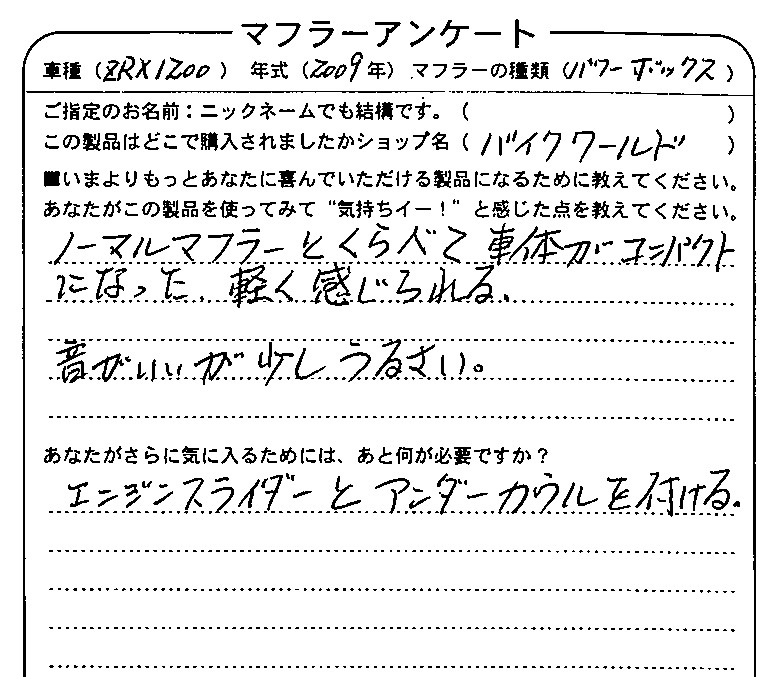 マフラーアンケート
車種（ZRX1200） 年式（2009年） マフラーの種類（パワーボックス）
ご指定のお名前：ニックネームでも結構です。（ ）
この製品はどこで購入されましたかショップ名（ バイクワールド ）
■いまよりもっとあなたに喜んでいただける製品になるために教えてください。
あなたがこの製品を使ってみて“気持ちイー！”と感じた点を教えてください。
ノーマルマフラーとくらべて車体がコンパクト
になった、軽く感じられる、
音がいいが少しうるさい。
あなたがさらに気に入るためには、あと何が必要ですか？
エンジンスライダーとアンダーカウルを付ける。